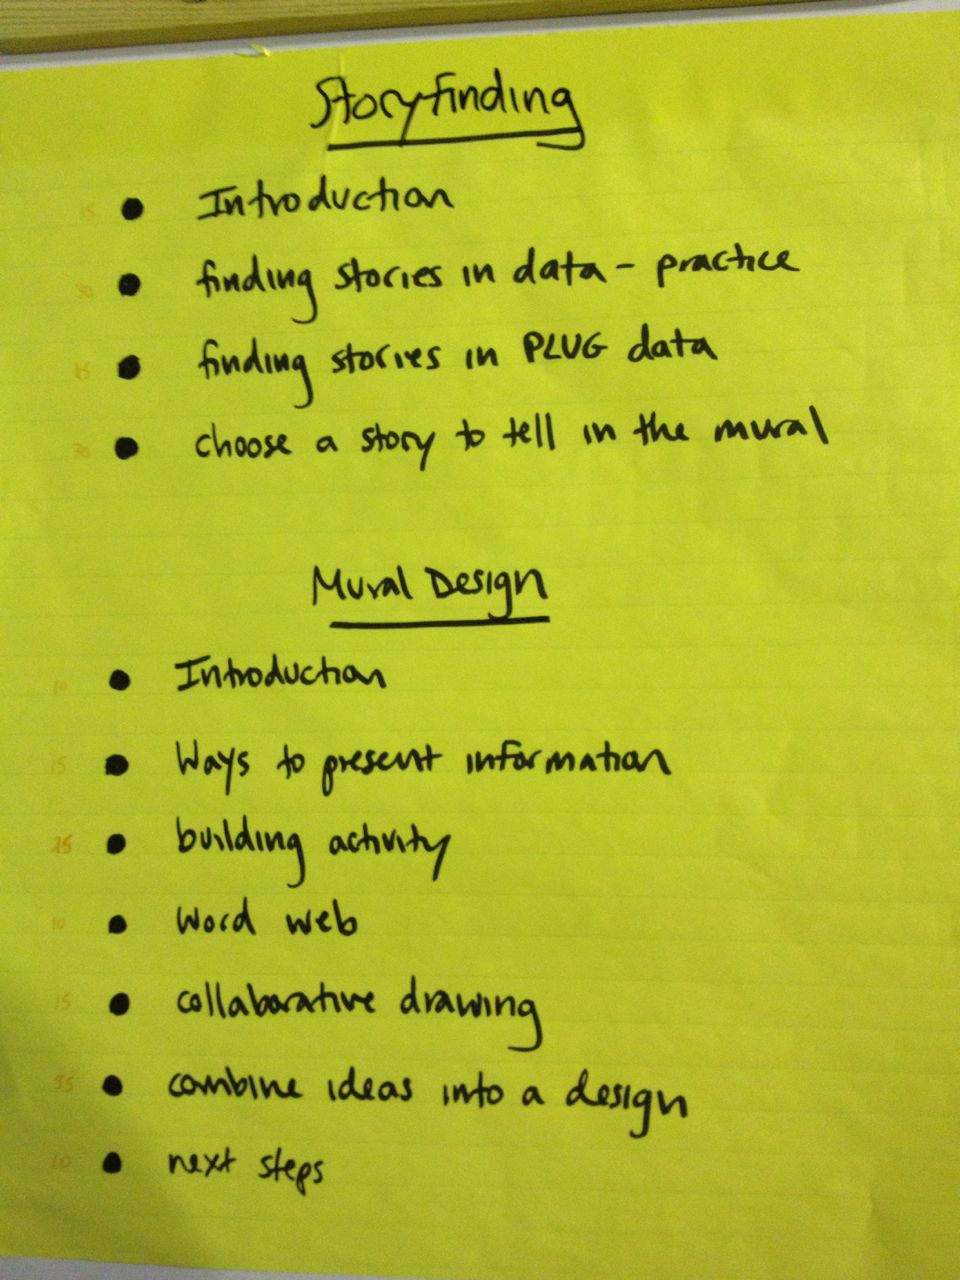 Storyfinding
15 • Introduction
30 • finding stories in data - practice
• finding stories in PLUG data
30 • choose a story to tell in the mural
Mural Design
10 • Introduction
15 • Ways to present information
25 • building activity
10 • Word web
15 • collaborative drawing
• combine ideas into a design
10 • next steps